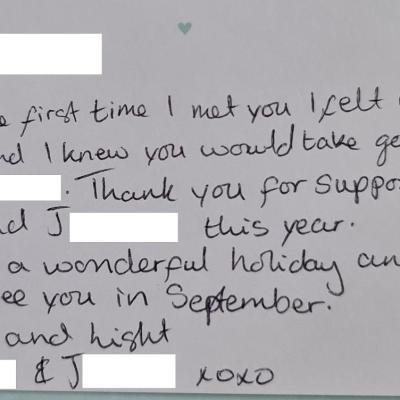 e first time I met you I felt
nd I knew you would take ge
. Thank you for suppo
nd J this year.
a wonderful holiday an
ee you in September.
and light
& J xoxo